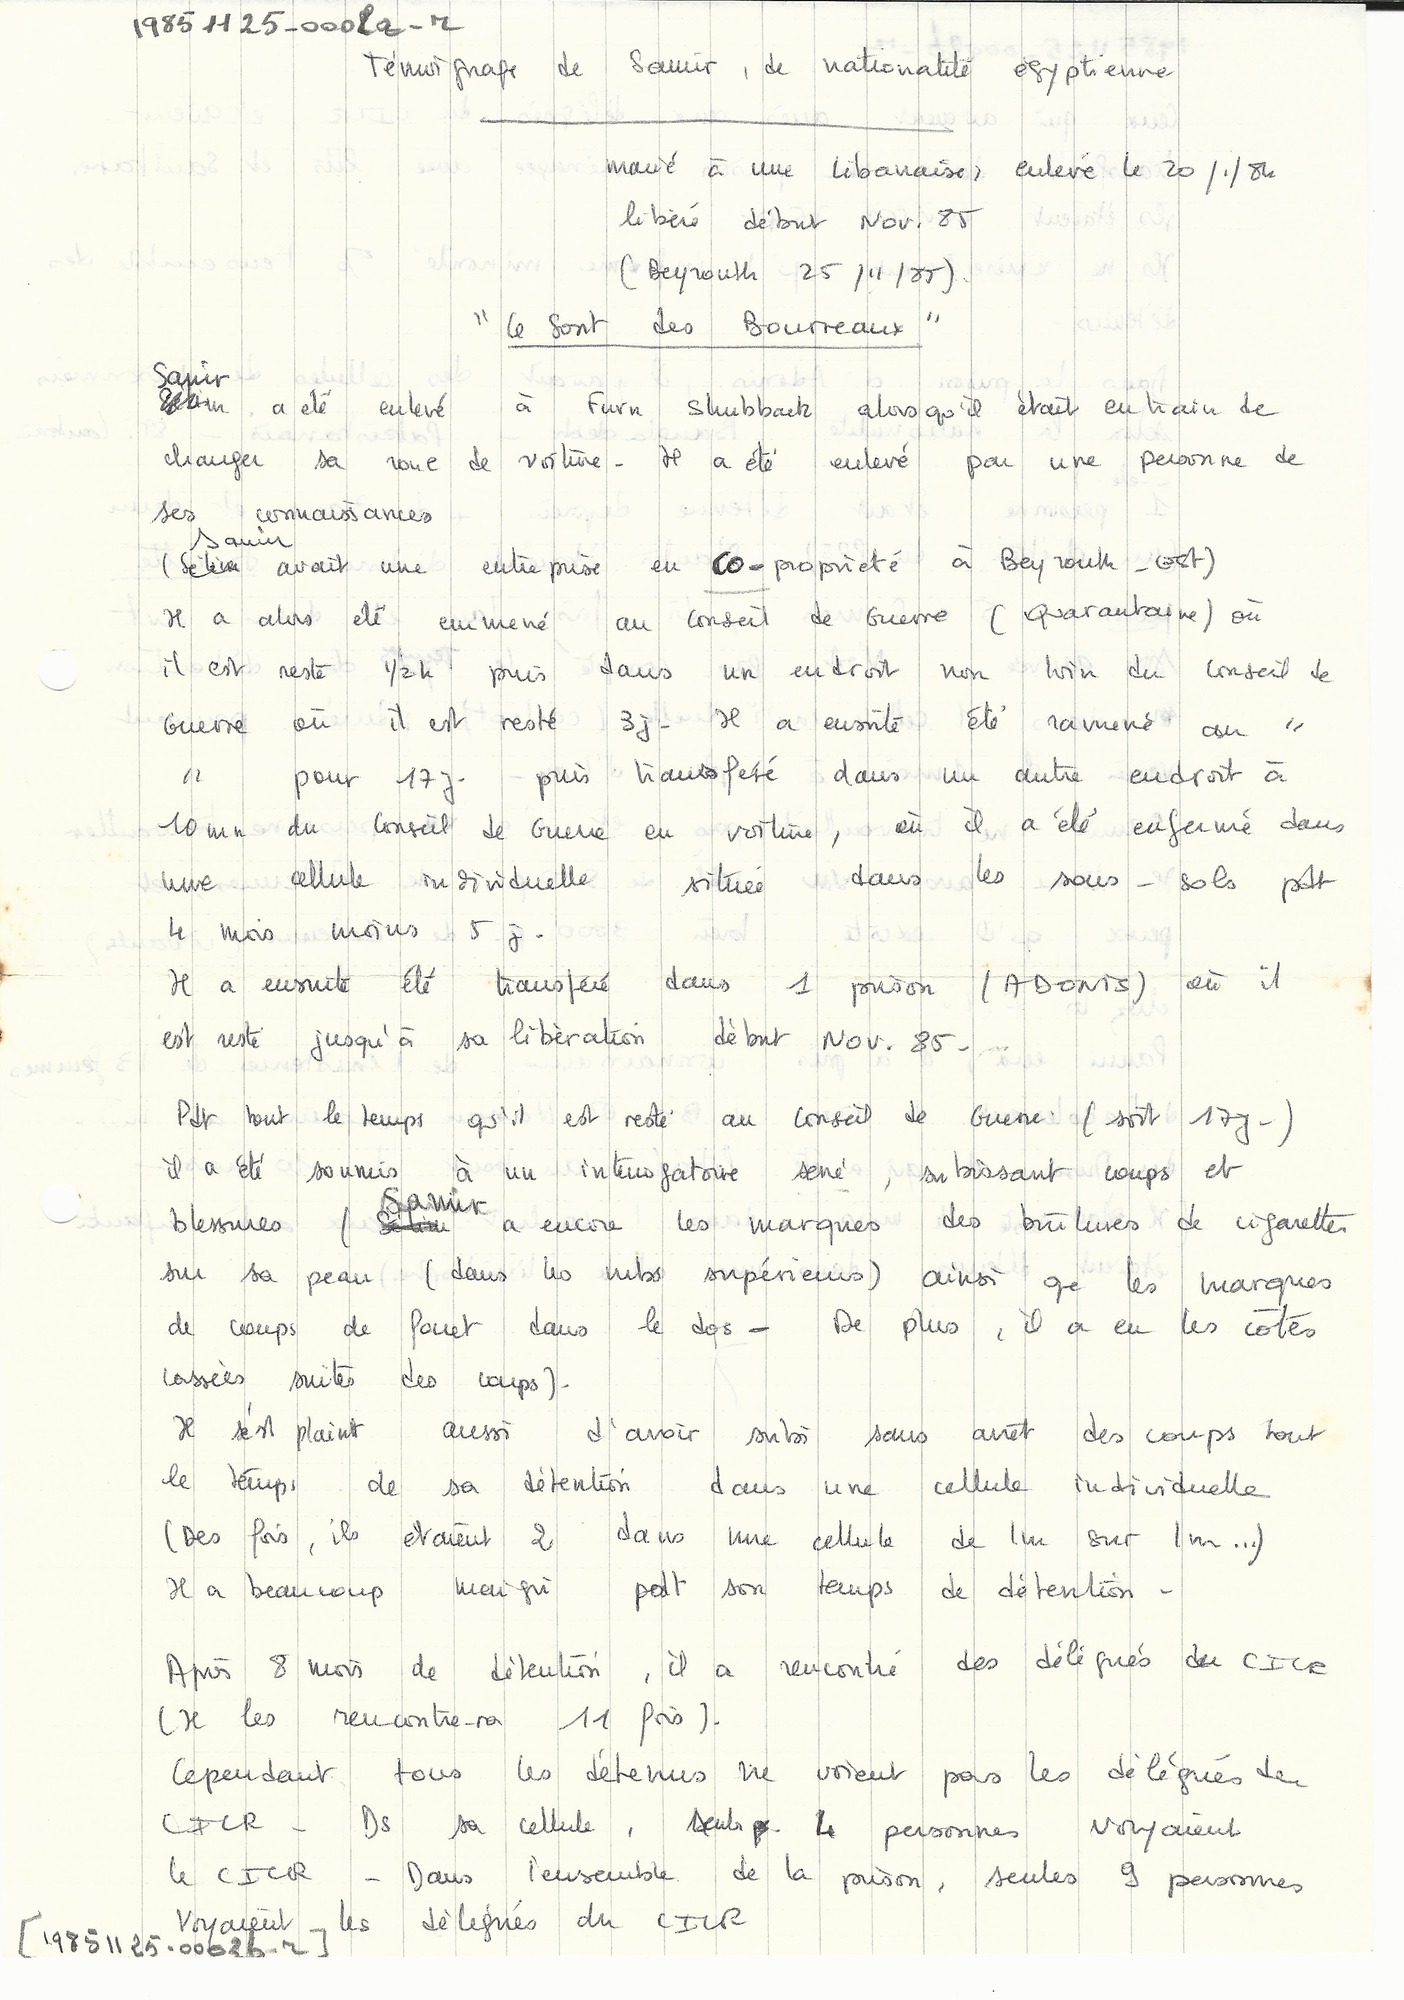 19851125-0002a-r
Témoignage de Samir, de nationalité égyptienne
marié à une Libanaise, enlevé le 20/1/84
libéré début Nov. 85
(Beyrouth 25/11/85).
"Ce sont des Bourreaux"
Samir
a été enlevé à Furn Shubback alors qu'il était entrain de
changer sa roue de voiture - Il a été enlevé par une personne de
ses connaissances
Samir
(Sélim avait une entreprise en co-propriété à Beyrouth-est)
Il a alors été emmené au Conseil de Guerre (Quarantaine) où
il est resté 1/2h puis dans un endroit non loin du Conseil de
Guerre où il est resté 3j- Il a ensuite été ramené au "
" pour 17j. puis transféré dans un autre endroit à
10mn du Conseil de Guerre en voiture, où il a été enfermé dans
une cellule individuelle située dans les sous-sols pdt
4 mois moins 5 j.
Il a ensuite été transféré dans 1 prison (ADONIS) où il
est resté jusqu'à sa libération début Nov. 85-
Pdt tout le temps qu'il est resté au Conseil de Guerre (soit 17j-)
il a été soumis à un interrogatoire serré, subissant coups et
Samir
blessures (Sélim a encore les marques des brûlures de cigarettes
sur sa peau (dans les mbs supérieurs) ainsi qe les marques
de coups de fouet dans le dos - De plus, il a eu les côtes
cassées suites des coups).
Il s'est plaint aussi d'avoir subi sans arrêt des coups tout
le temps de sa détention dans une cellule individuelle
(Des fois, ils étaient 2 dans une cellule de 1m sur 1m...)
Il a beaucoup maigri pdt son temps de détention -
Après 8 mois de détention, il a rencontré des délégués du CICR
(Il les rencontre-ra 11 fois).
Cependant tous les détenus ne voient pas les délégués du
CICR - Ds sa cellule, seuls 4 personnes voyaient
le CICR - Dans l'ensemble de la prison, seules 9 personnes
voyaient les délégués du CICR
[19851125-0002b-r]